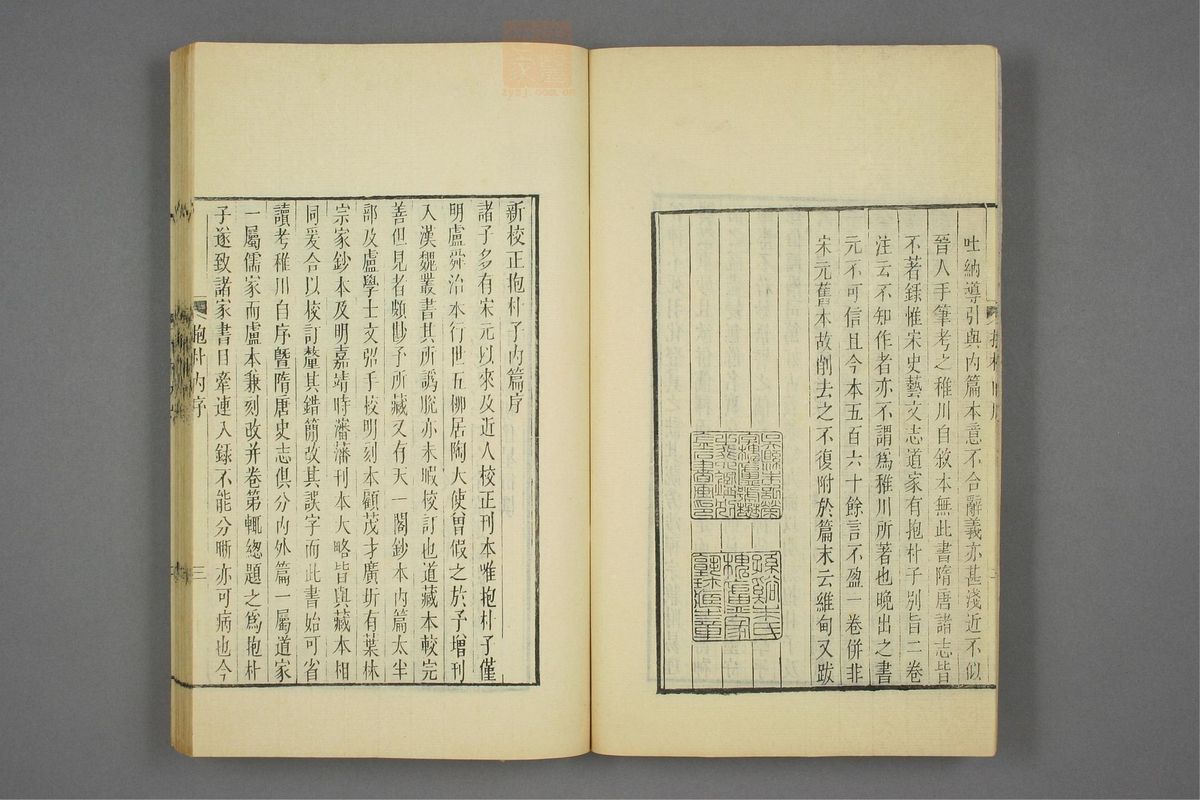 吐納導引與內篇本意不合辭義亦甚淺近不似
晉人手筆考之稚川自敘本無此書隋唐諸志皆
不著錄惟宋史藝文志道家有抱朴子別旨二卷
注云不知作者亦不謂爲稚川所著也晚出之書
元不可信且今本五百六十餘言不盈一卷併非
宋元舊本故削去之不復附於篇末云維甸又跋
新校正抱朴子內篇序
諸子多有宋元以來及近人校正刊本唯抱朴子僅
明盧舜治本行世五柳居陶大使曾假之於予增刊
入漢魏叢書其所譌脫亦未暇校訂也道藏本較完
善但見者頗尟予所藏又有天一閣鈔本內篇太半
部及盧學士文弨手校明刻本顧茂才廣圻有葉林
宗家鈔本及明嘉靖時瀋藩刊本大略皆與藏本相
同爰合以校訂釐其錯簡改其誤字而此書始可省
讀考稚川自序暨隋唐史志俱分內外篇一屬道家
一屬儒家而盧本兼刻改并卷第輒總題之爲抱朴
子遂致諸家書目牽連入錄不能分晰亦可病也今
抱朴內序
三